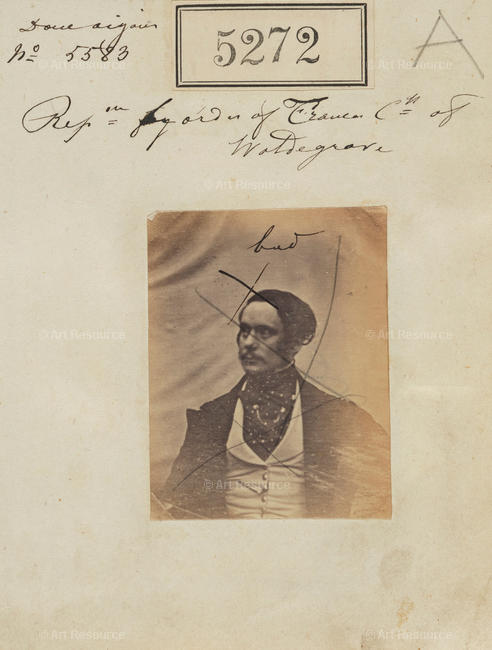 Done again
No 5583
5272
A
Repn by order of Frances Css of
Waldegrave
bad
© Art Resource
© Art Resource
© Art Resource
© Art Resource
© Art Resource
© Art Resource
© Art Resource
© Art Resource